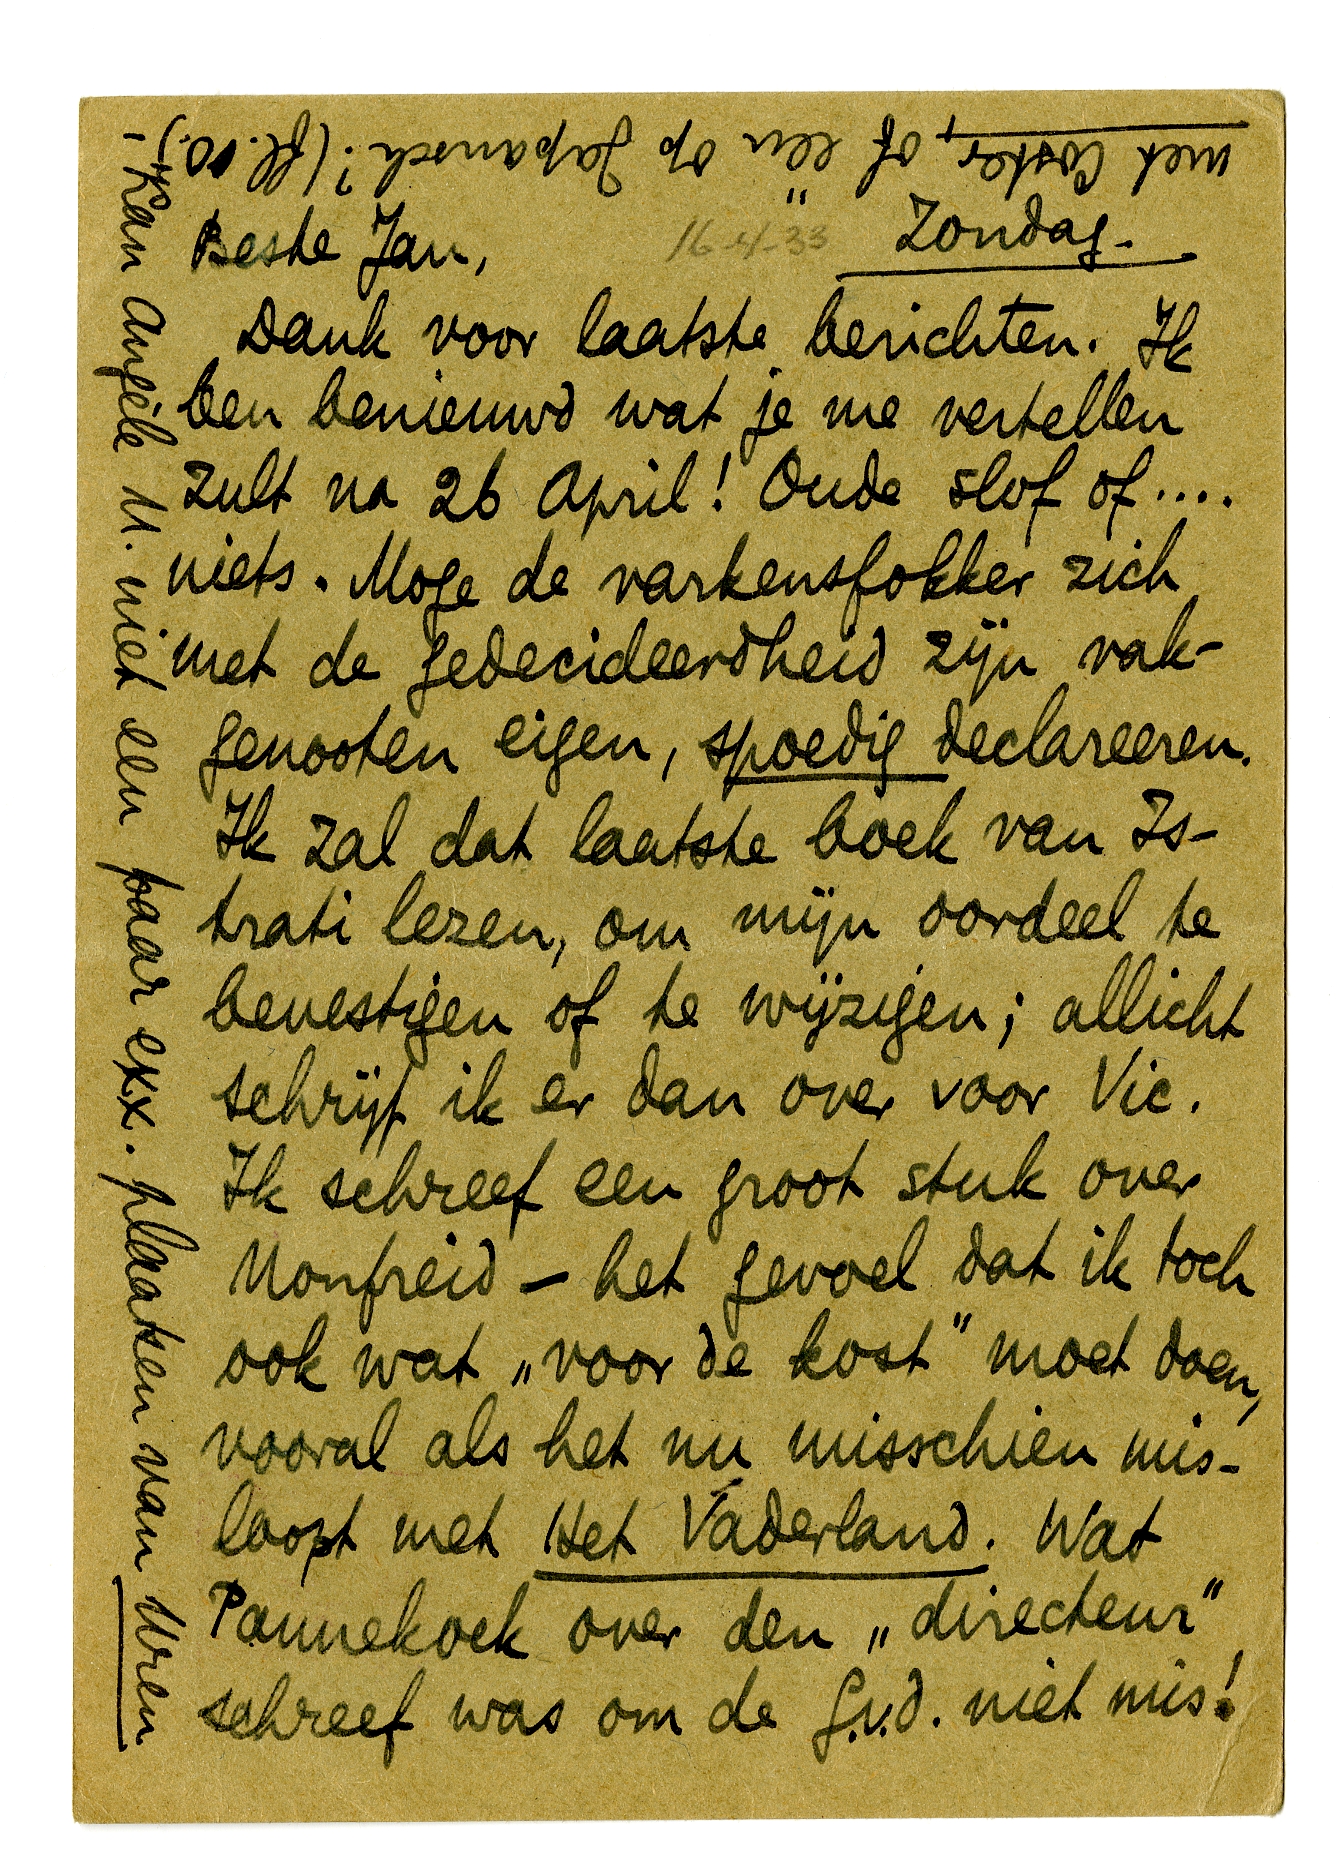 Zondag.
16-4-33
Beste Jan,
Dank voor laatste berichten. Ik
ben benieuwd wat je me vertellen
zult na 26 April! Oude slof of....
niets. Moge de varkensfokker zich
met de gedecideerdheid zijn vak-
genooten eigen, spoedig declareeren.
Ik zal dat laatste boek van Is-
trati lezen, om mijn oordeel te
bevestigen of te wijzigen; allicht
schrijf ik er dan over voor Vic.
Ik schreef een groot stuk over
Monfreid – het gevoel dat ik toch
ook wat „voor de kost" moet doen,
vooral als het nu misschien mis-
loopt met Het Vaderland. Wat
Pannekoek over den „directeur"
schreef was om de g.v.d. niet mis!
– Kan Angèle M. niet een paar exx. plaatsen van Uren
met Coster, of een op Japansch? (fl. 10.)